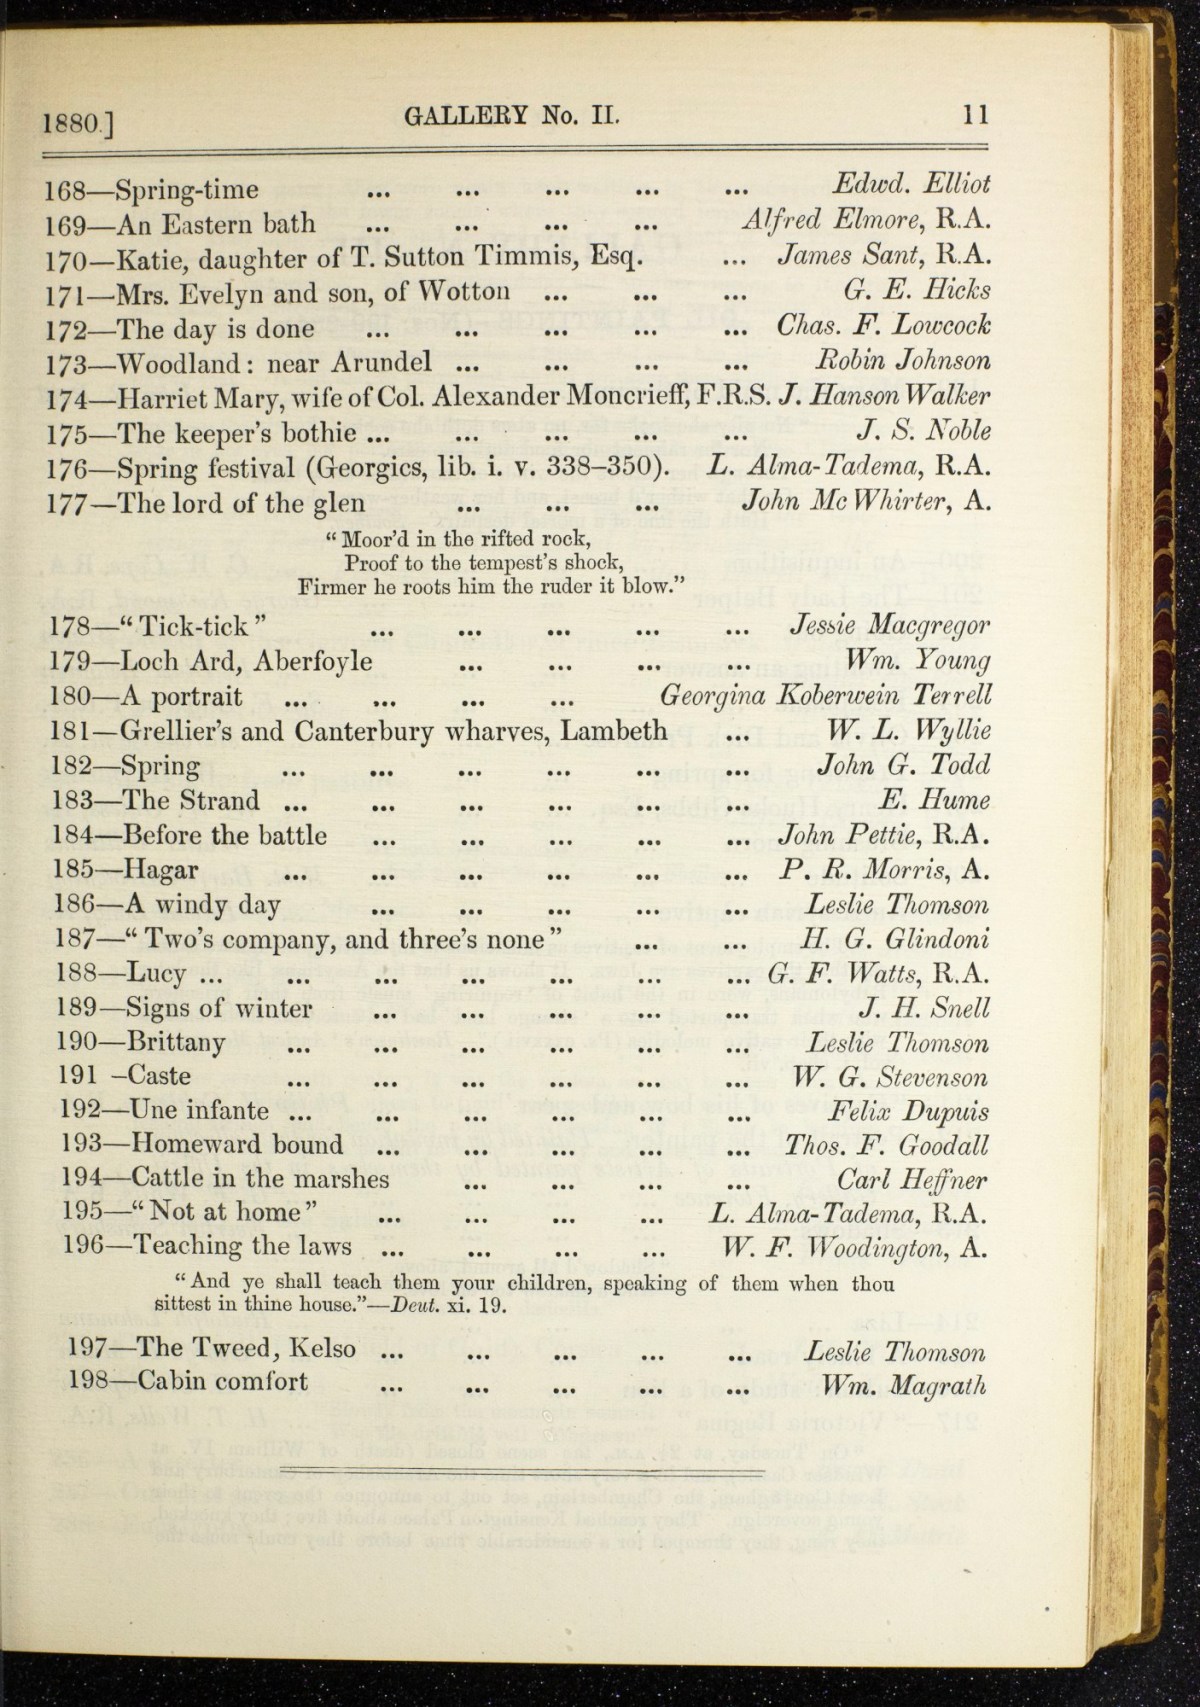 1880.] GALLERY No. II. 11
168—Spring-time ... ... ... ... ... Edwd. Elliot
169—An Eastern bath ... ... ... ... Alfred Elmore, R.A.
170—Katie, daughter of T. Sutton Timmis, Esq. ... James Sant, R.A.
171—Mrs. Evelyn and son, of Wotton ... ... ... G. E. Hicks
172—The day is done ... ... ... ... ... Chas. F. Lowcock
173—Woodland: near Arundel ... ... ... ... Robin Johnson
174—Harriet Mary, wife of Col. Alexander Moncrieff, F.R.S. J. Hanson Walker
175—The keeper's bothie ... ... ... ... ... J. S. Noble
176—Spring festival (Georgics, lib. i. v. 338–350). L. Alma-Tadema, R.A.
177—The lord of the glen ... ... ... John Mc Whirter, A.
“Moor'd in the rifted rock,
Proof to the tempest's shock,
Firmer he roots him the ruder it blow.”
178—“Tick-tick” ... ... ... ... ... Jessie Macgregor
179—Loch Ard, Aberfoyle ... ... ... ... Wm. Young
180—A portrait ... ... ... ... Georgina Koberwein Terrell
181—Grellier's and Canterbury wharves, Lambeth ... W. L. Wyllie
182—Spring ... ... ... ... ... ... John G. Todd
183—The Strand ... ... ... ... ... ... E. Hume
184—Before the battle ... ... ... ... ... John Pettie, R.A.
185—Hagar ... ... ... ... ... ... P. R. Morris, A.
186—A windy day ... ... ... ... ... Leslie Thomson
187—“Two's company, and three's none” ... ... H. G. Glindoni
188—Lucy ... ... ... ... ... ... ... G. F. Watts, R.A.
189—Signs of winter ... ... ... ... ... J. H. Snell
190—Brittany ... ... ... ... ... ... Leslie Thomson
191 –Caste ... ... ... ... ... ... W. G. Stevenson
192—Une infante ... ... ... ... ... ... Felix Dupuis
193—Homeward bound ... ... ... ... ... Thos. F. Goodall
194—Cattle in the marshes ... ... ... ... Carl Heffner
195—“Not at home” ... ... ... ... L. Alma-Tadema, R.A.
196—Teaching the laws ... ... ... ... W. F. Woodington, A.
“And ye shall teach them your children, speaking of them when thou
sittest in thine house.”—Deut. xi. 19.
197—The Tweed, Kelso ... ... ... ... ... Leslie Thomson
198—Cabin comfort ... ... ... ... ... Wm. Magrath